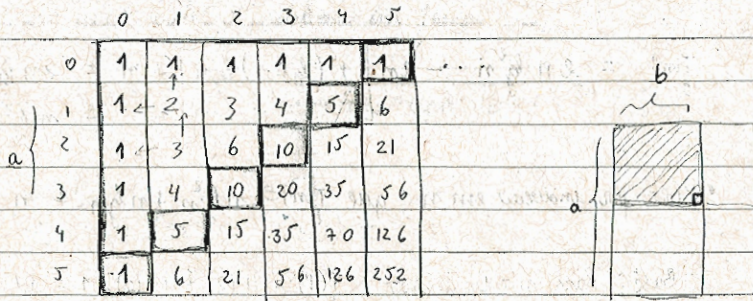 0 1 2 3 4 5
0 1 1 1 1 1 1 ...
1 1 ← 2 3 4 5 6
2 1 ← 3 6 10 15 21
3 1 4 10 20 35 56
4 1 5 15 35 70 126
5 1 6 21 56 126 252
a
b
a